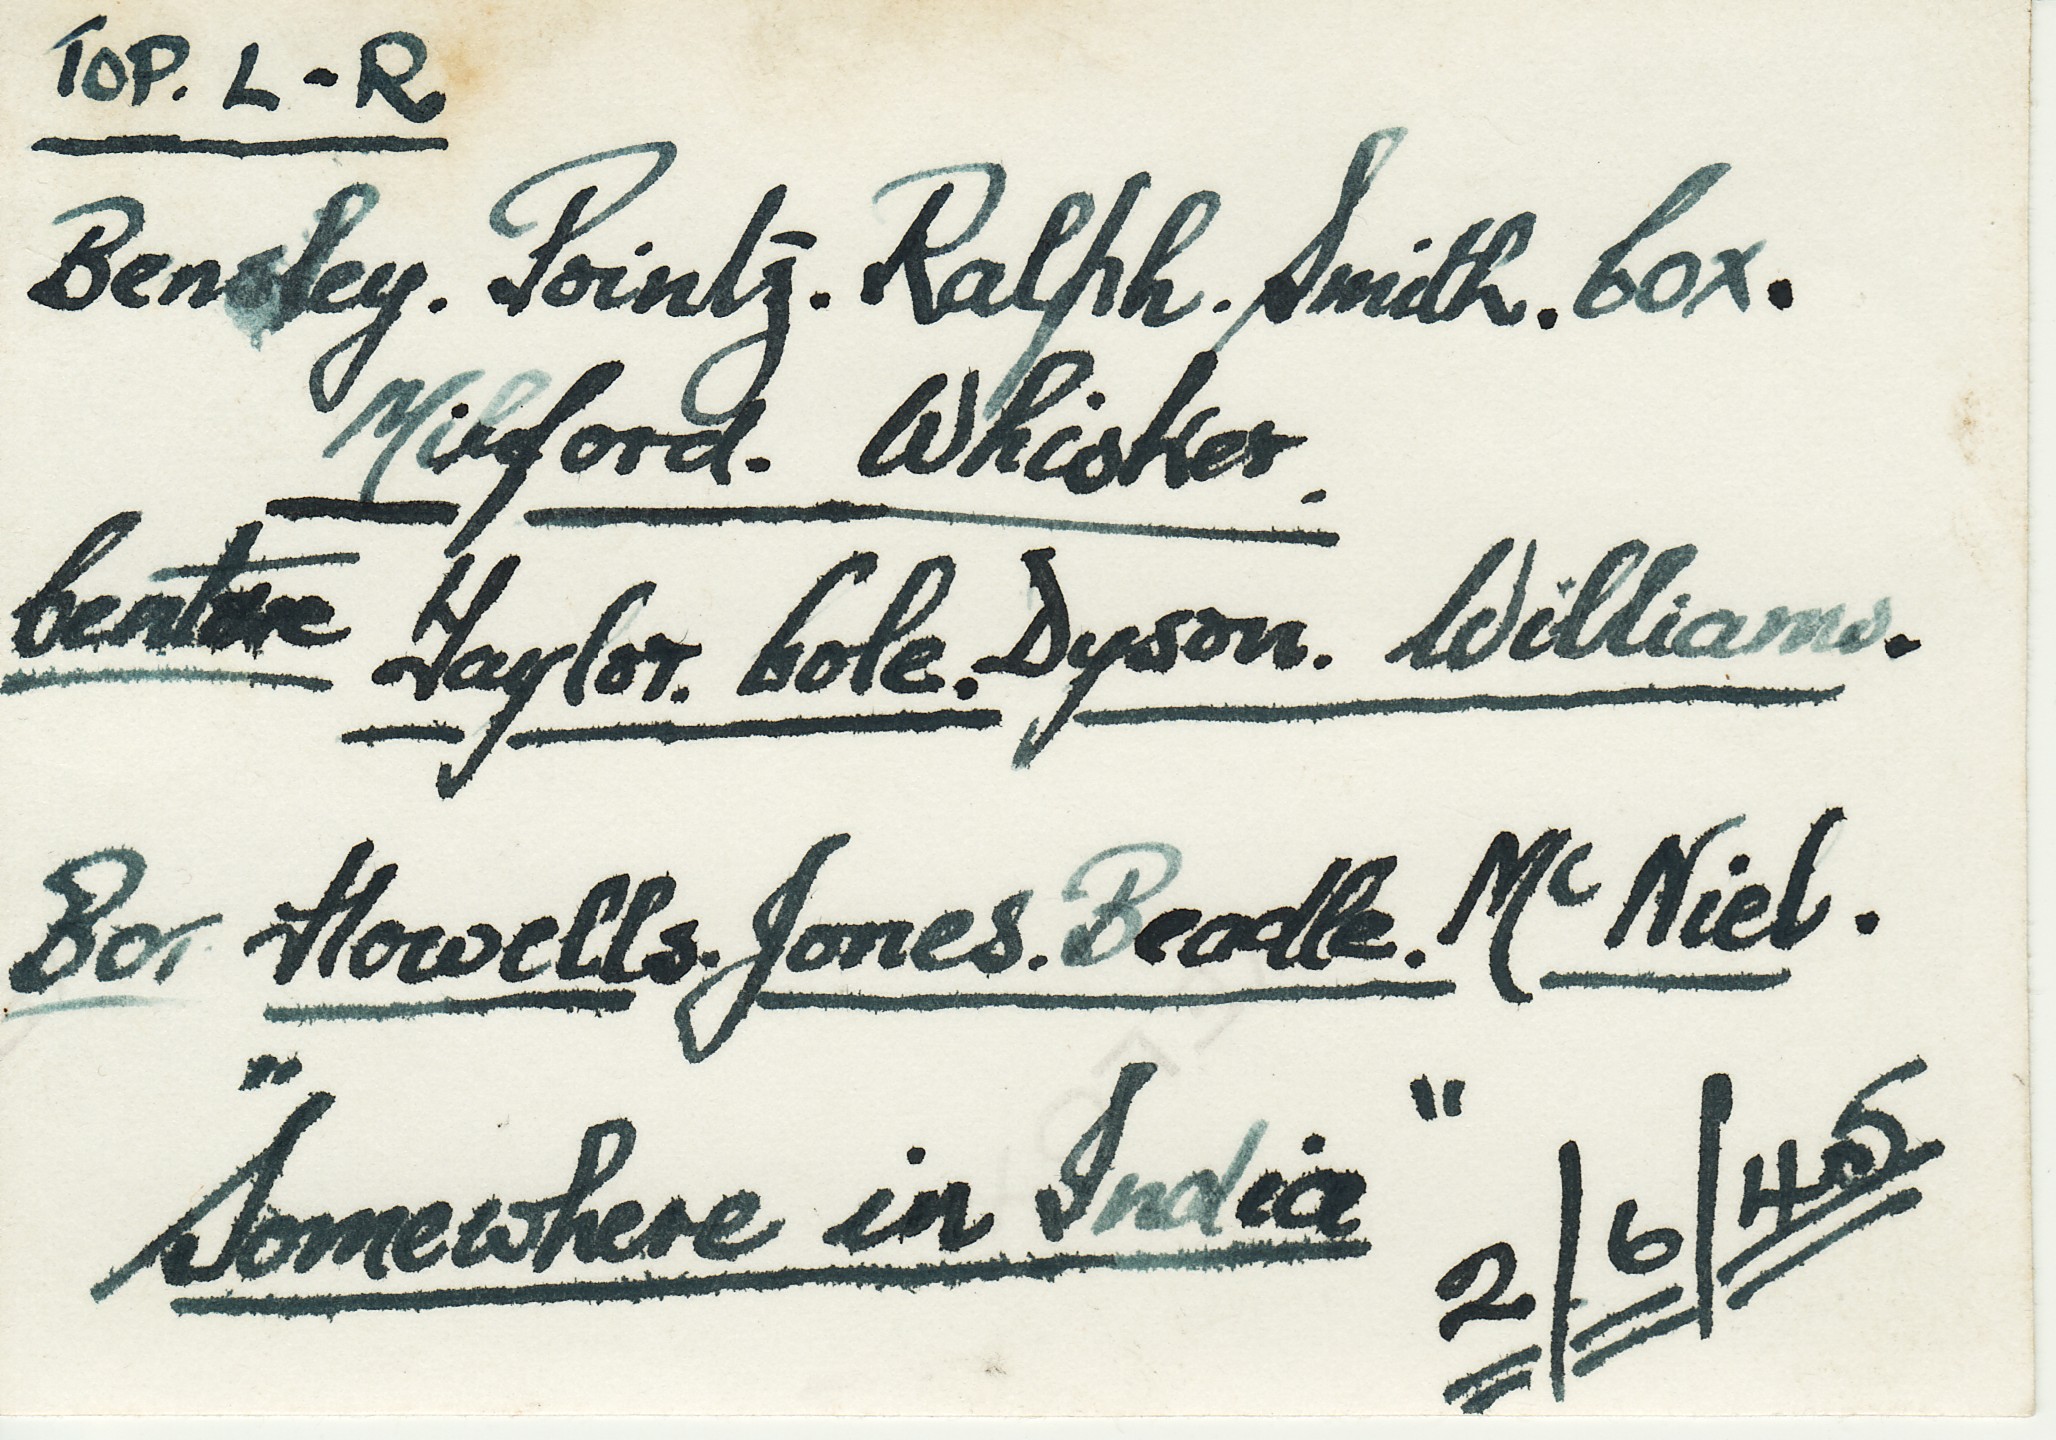 TOP. L - R
Bensley. Pointz. Ralph. Smith. Cox.
Milford. Whisker.
Centre Taylor. Cole. Dyson. Williams.
Bot Howells. Jones. Beadle. Mc Niel.
" Somewhere in India " 2/6/45